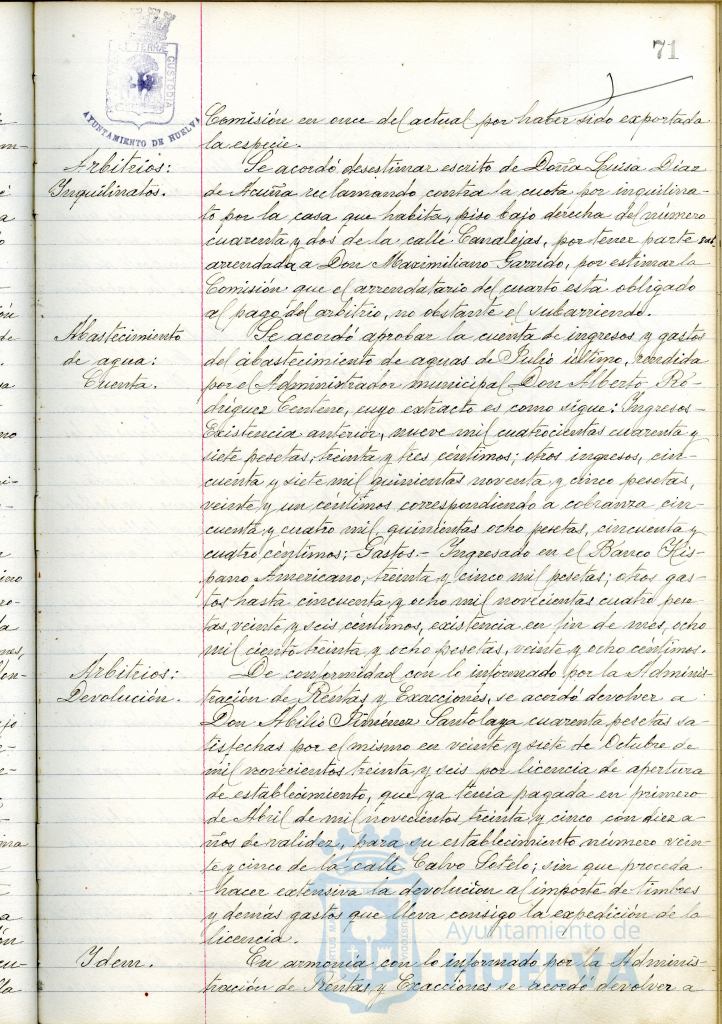 71
AYUNTAMIENTO DE HUELVA
Comisión en once del actual por haber sido exportada
la especie.
Arbitrios:
Inquilinatos.
Se acordó desestimar escrito de Doña Luisa Díaz
de Acuña reclamando contra la cuota por inquilina-
to por la casa que habita, piso bajo derecha del número
cuarenta y dos de la calle Canalejas, por tener parte sub
arrendada a Don Maximiliano Garrido, por estimar la
Comisión que el arrendatario del cuarto está obligado
al pago del arbitrio, no obstante el subarriendo.
Abastecimiento
de agua:
Cuenta.
Se acordó aprobar la cuenta de ingresos y gastos
del abastecimiento de aguas de Julio último, rendida
por el Administrador municipal Don Alberto Ro-
dríguez Centeno, cuyo extracto es como sigue: Ingresos-
Existencia anterior, nueve mil cuatrocientas cuarenta y
siete pesetas, treinta y tres céntimos; otros ingresos, cin-
cuenta y siete mil quinientas noventa y cinco pesetas,
veinte y un céntimos correspondiendo a cobranza cin-
cuenta y cuatro mil, quinientas ocho pesetas, cincuenta y
cuatro céntimos; Gastos.- Ingresado en el Banco His-
pano Americano, treinta y cinco mil pesetas; otros gas-
tos hasta cincuenta y ocho mil novecientas cuatro pese-
tas, veinte y seis céntimos, existencia en fin de mes, ocho
mil ciento treinta y ocho pesetas, veinte y ocho céntimos.
Arbitrios:
Devolución.
De conformidad con lo informado por la Adminis-
tración de Rentas y Exacciones, se acordó devolver a
Don Abilio Jiménez Santolaya cuarenta pesetas sa-
tisfechas por el mismo en veinte y siete de Octubre de
mil novecientos treinta y seis por licencia de apertura
de establecimiento, que ya tenía pagada en primero
de Abril de mil novecientos treinta y cinco con diez a-
ños de validez, para su establecimiento número vein-
te y cinco de la calle Calvo Sotelo; sin que proceda
hacer extensiva la devolución al importe de timbres
y demás gastos que lleva consigo la expedición de la
licencia.
Idem.
En armonía con lo informado por la Adminis-
tración de Rentas y Exacciones se acordó devolver a
Ayuntamiento de
HUELVA